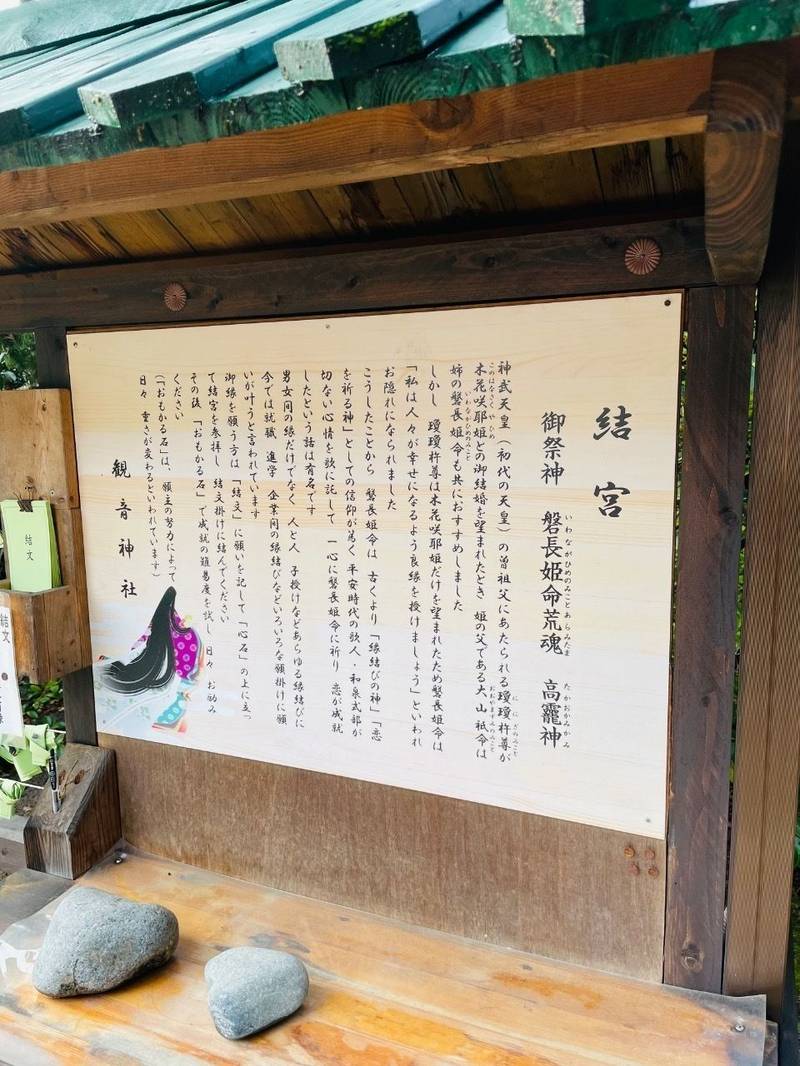 結宮
いわながひめのみことあらみたま たかおかみかみ
御祭神 磐長姫命荒魂 高龗神
ににぎのみこと
神武天皇(初代の天皇)の曾祖父にあたられる瓊瓊杵尊が
このはなさくやひめ おおやまずみのみこと
木花咲耶姫との御結婚を望まれたとき 姫の父である大山祇命は
いわながひめのみこと
姉の磐長姫命も共におすすめしました
しかし 瓊瓊杵尊は木花咲耶姫だけを望まれたため磐長姫命は
「私は人々が幸せになるよう良縁を授けましょう」といわれ
お隠れになられました
こうしたことから 磐長姫命は 古くより「縁結びの神」「恋
を祈る神」としての信仰が篤く 平安時代の歌人・和泉式部が
切ない心情を歌に託して 一心に磐長姫命に祈り 恋が成就
したという話は有名です
男女間の縁だけでなく 人と人 子授けなどあらゆる縁結びに
今では就職 進学 企業間の縁結びなどいろいろな願掛けに願
いが叶うと言われています
御縁を願う方は「結文」に願いを記して「心石」の上に立っ
て結宮を参拝し 結文掛けに結んでください
その後、「おもかる石」で成就の難易度を試し 日々 お励み
ください
(「おもかる石」は、願主の努力によって
日々 重さが変わるといわれています)
観音神社
結文
結文